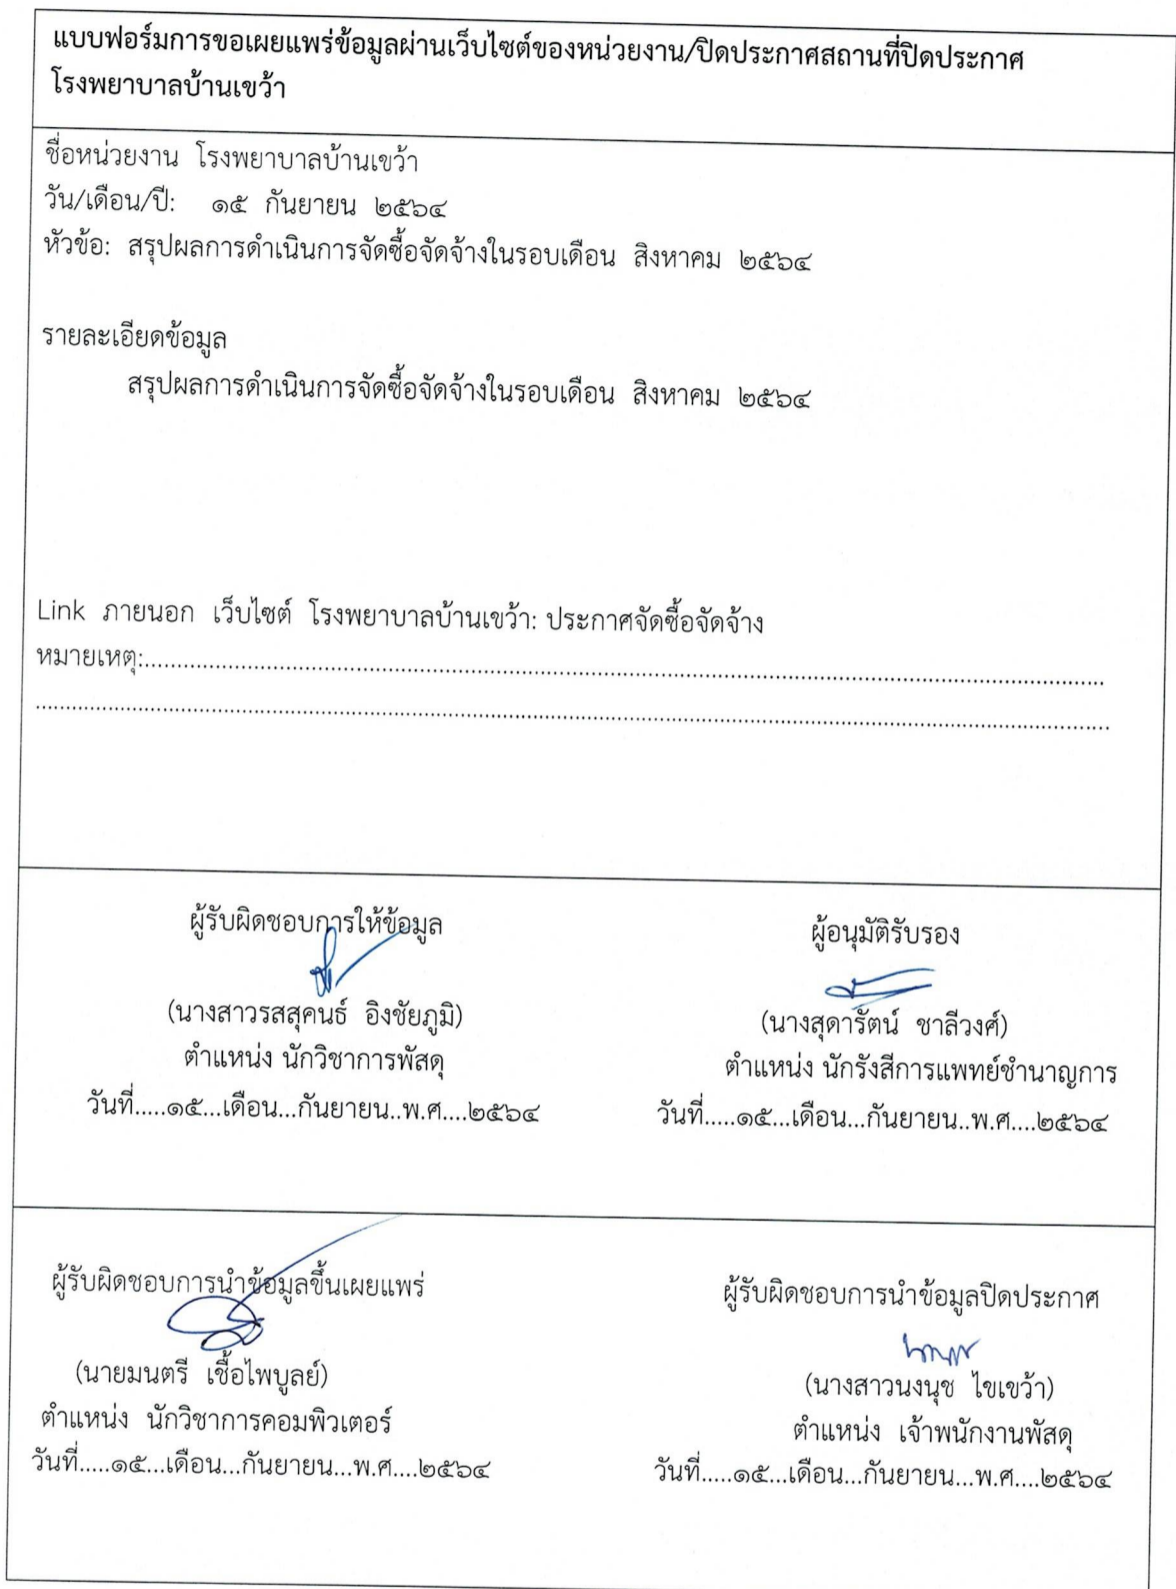 แบบฟอร์มการขอเผยแพร่ข้อมูลผ่านเว็บไซต์ของหน่วยงาน/ปิดประกาศสถานที่ปิดประกาศ
โรงพยาบาลบ้านเขว้า
ชื่อหน่วยงาน โรงพยาบาลบ้านเขว้า
วัน/เดือน/ปี: ๑๕ กันยายน ๒๕๖๔
หัวข้อ: สรุปผลการดำเนินการจัดซื้อจัดจ้างในรอบเดือน สิงหาคม ๒๕๖๔
รายละเอียดข้อมูล
สรุปผลการดำเนินการจัดซื้อจัดจ้างในรอบเดือน สิงหาคม ๒๕๖๔
Link ภายนอก เว็บไซต์ โรงพยาบาลบ้านเขว้า: ประกาศจัดซื้อจัดจ้าง
หมายเหตุ:..........................................................................................................................................
..........................................................................................................................................................
ผู้รับผิดชอบการให้ข้อมูล
(นางสาวรสสุคนธ์ อิงชัยภูมิ)
ตำแหน่ง นักวิชาการพัสดุ
วันที่.....๑๕...เดือน...กันยายน..พ.ศ....๒๕๖๔
ผู้อนุมัติรับรอง
(นางสุดารัตน์ ชาลีวงศ์)
ตำแหน่ง นักรังสีการแพทย์ชำนาญการ
วันที่.....๑๕...เดือน...กันยายน..พ.ศ....๒๕๖๔
ผู้รับผิดชอบการนำข้อมูลขึ้นเผยแพร่
(นายมนตรี เชื้อไพบูลย์)
ตำแหน่ง นักวิชาการคอมพิวเตอร์
วันที่.....๑๕...เดือน...กันยายน...พ.ศ....๒๕๖๔
ผู้รับผิดชอบการนำข้อมูลปิดประกาศ
(นางสาวนงนุช ไขเขว้า)
ตำแหน่ง เจ้าพนักงานพัสดุ
วันที่.....๑๕...เดือน...กันยายน...พ.ศ....๒๕๖๔